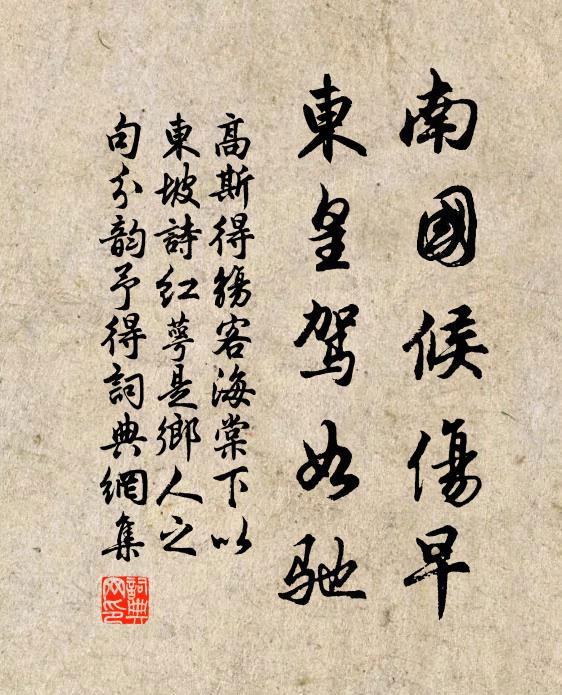 南國候傷早
東皇駕如馳
高斯得觴客海棠下以
東坡詩紅萼是鄉人之
句分韵予得詞典網集
詞典
网印